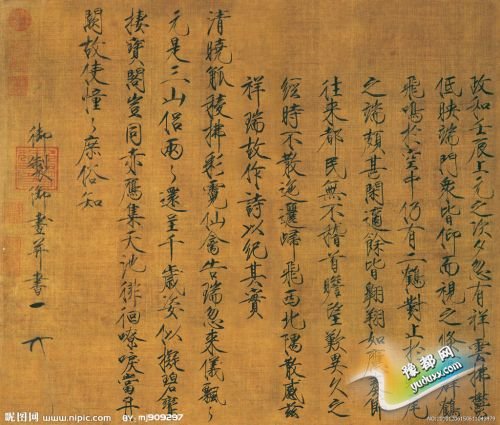 政和壬辰上元之次夕忽有祥雲拂鬱
低映端門眾皆仰而視之倏有群鶴
飛鳴於空中仍有二鶴對止於尾
之端頗甚閑適餘皆翱翔如應奏節
往來都民無不稽首瞻望歎異久之
經時不散迤邐歸飛西北隅散感茲
祥瑞故作詩以紀其實
清曉觚稜拂彩霓仙禽告瑞忽來儀飄〻
元是三山侶兩〻還呈千歲姿似擬碧鸞
棲寶閣豈同赤鴈集天池徘徊嘹唳當丹
闕故使憧〻庶俗知
御製御畫并書
豫都网
昵图网 www.nipic.com BY: mj909297